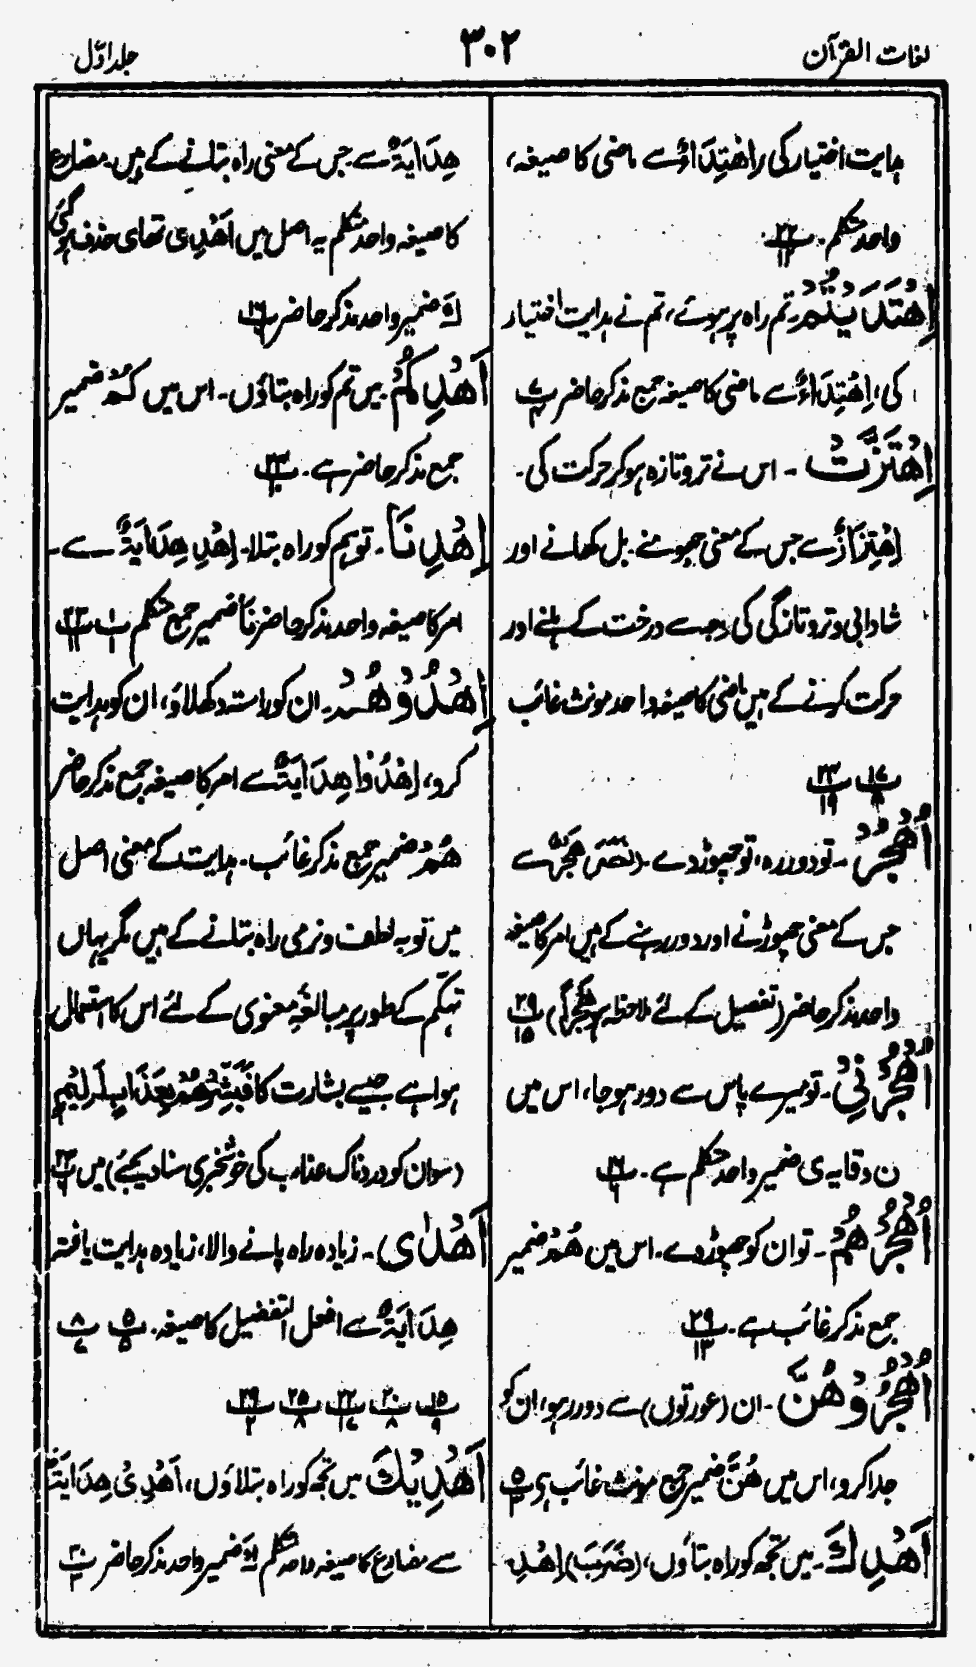 لغات القرآن
۳۰۲
جلد اوّل
ہدایت اختیار کی (اِهْتِدَاءٌ سے ماضی کا صیغہ،
واحد متکلم۔ پ۲۲/۱۲
اِهْتَدَيْتُمْ۔ تم راہ پر ہوئے، تم نے ہدایت اختیار
کی، اِهْتِدَاءٌ سے ماضی کا صیغہ جمع مذکر حاضر پ۷/۴
اِهْتَزَّتْ۔ اس نے تروتازہ ہو کر حرکت کی۔
اِهْتِزَازٌ سے جس کے معنی جھومنے۔ بل کھانے اور
شادابی و تروتازگی کی وجہ سے درخت کے ہلنے اور
حرکت کرنے کے ہیں ماضی کا صیغہ واحد مونث غائب
پ۱۷/۸ پ۲۴/۱۹
اُهْجُرْ۔ تو دور رہ، تو چھوڑ دے۔ (نَصَرَ) هَجْرٌ سے
جس کے معنی چھوڑنے اور دور رہنے کے ہیں امر کا صیغہ
واحد مذکر حاضر (تفصیل کے لئے ملاحظہ ہو هَجْرًا) پ۲۹/۱۵
اُهْجُرْنِيْ۔ تو میرے پاس سے دور ہو جا، اس میں
ن وقایہ ی ضمیر واحد متکلم ہے۔ پ۱۶/۶
اُهْجُرْهُمْ۔ تو ان کو چھوڑ دے۔ اس میں هُمْ ضمیر
جمع مذکر غائب ہے۔ پ۲۹/۱۳
اُهْجُرُوْهُنَّ۔ ان (عورتوں) سے دور رہو، ان کو
جدا کرو، اس میں هُنَّ ضمیر جمع مونث غائب ہے پ۵/۳
اَهْدِكَ۔ میں تجھ کو راہ بتاؤں، (ضَرَبَ) اِهْدِ۔
هِدَايَةٌ سے جس کے معنی راہ بتانے کے ہیں۔ مضارع
کا صیغہ واحد متکلم یہ اصل میں اَهْدِی تھا ی حذف ہو گئی
كَ ضمیر واحد مذکر حاضر پ۱۶/۶
اَهْدِكُمْ۔ میں تم کو راہ بتاؤں۔ اس میں كُمْ ضمیر
جمع مذکر حاضر ہے۔ پ۲۴/۱۰
اِهْدِنَا۔ تو ہم کو راہ بتلا۔ اِهْدِ هِدَايَةٌ سے۔
امر کا صیغہ واحد مذکر حاضر نَا ضمیر جمع متکلم پ۱/۱ پ۲۳/۱۱
اِهْدُوْهُمْ۔ ان کو راستہ دکھلاؤ، ان کو ہدایت
کرو، اِهْدُوْا هِدَايَةٌ سے امر کا صیغہ جمع مذکر حاضر
هُمْ ضمیر جمع مذکر غائب۔ ہدایت کے معنی اصل
میں تو بہ لطف و نرمی راہ بتلانے کے ہیں مگر یہاں
تہکّم کے طور پر مبالغہ معنوی کے لئے اس کا استعمال
ہوا ہے جیسے بشارت کا فَبَشِّرْهُمْ بِعَذَابٍ اَلِيْمٍ
(سو ان کو دردناک عذاب کی خوشخبری سنا دیجئے) میں پ۲۳/۶
اَهْدٰى۔ زیادہ راہ پانے والا، زیادہ ہدایت یافتہ
هِدَايَةٌ سے افعل التفضیل کا صیغہ۔ پ۵/۵ پ۸/۷
پ۱۵/۹ پ۲۰/۸ پ۲۲/۱۷ پ۲۵/۸ پ۲۹/۲
اَهْدِيْكَ میں تجھ کو راہ بتلاؤں، اَهْدِيْ هِدَايَةٌ
سے مضارع کا صیغہ واحد متکلم كَ ضمیر واحد مذکر حاضر پ۳۰/۳